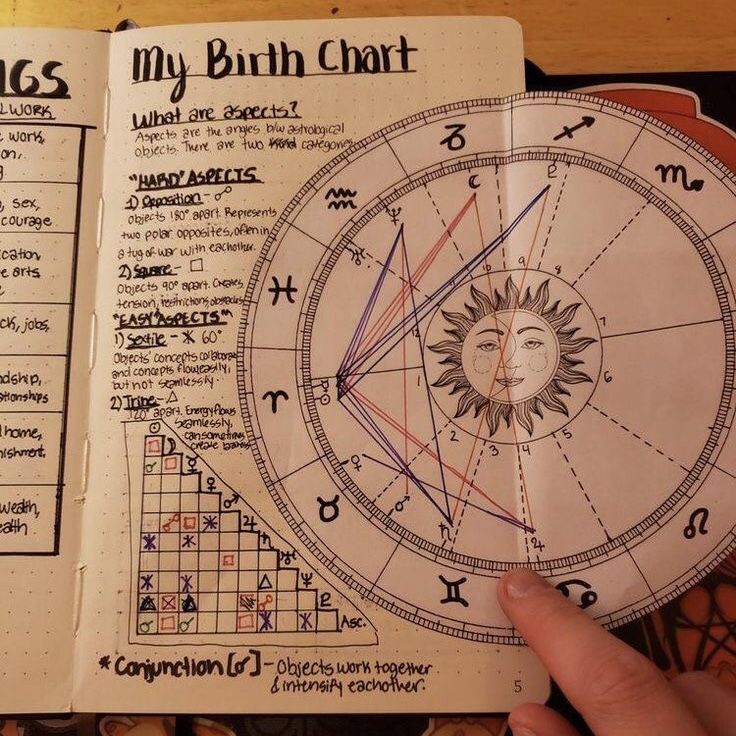 NGS
WORK
work,
on,
g
, sex,
courage
cation,
e arts
ck, jobs,
dship,
ationships
home,
ishment
wealth,
ealth
My Birth Chart
What are aspects?
Aspects are the angles b/w astrological
objects. There are two categories
"HARD" ASPECTS
1) Opposition - ☍
Objects 180° apart. Represents
two polar opposites, often in
a tug of war with eachother.
2) Square - □
Objects 90° apart. Creates
tension, restrictions, obstacles
"EASY" ASPECTS"
1) Sextile - ⚹ 60°
Objects' concepts collaborate
and concepts flow easily,
but not seamlessly.
2) Trine - △
120° apart. Energy flows
seamlessly,
can sometimes
create
☉
☽
☿
♀
♂
♃
♄
♅
♆
♇
Asc.
* Conjunction [☌] - Objects work together
& intensify eachother.
5
♑ ♐ ♏ ♒ ♓ ♈ ♉ ♊ ♋ ♌
1 2 3 4 5 6 7 8 9 12